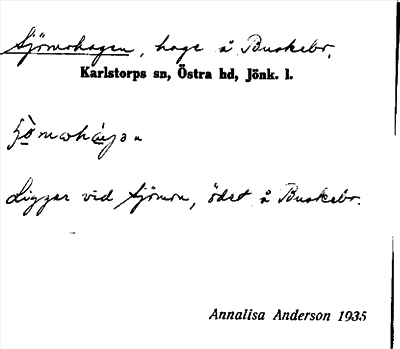 Sjömohagen, hage å Buskebr.
Karlstorps sn, Östra hd, Jönk. l.
Ligger vid Sjömon, ödet å Buskebr.
Annalisa Anderson 1935